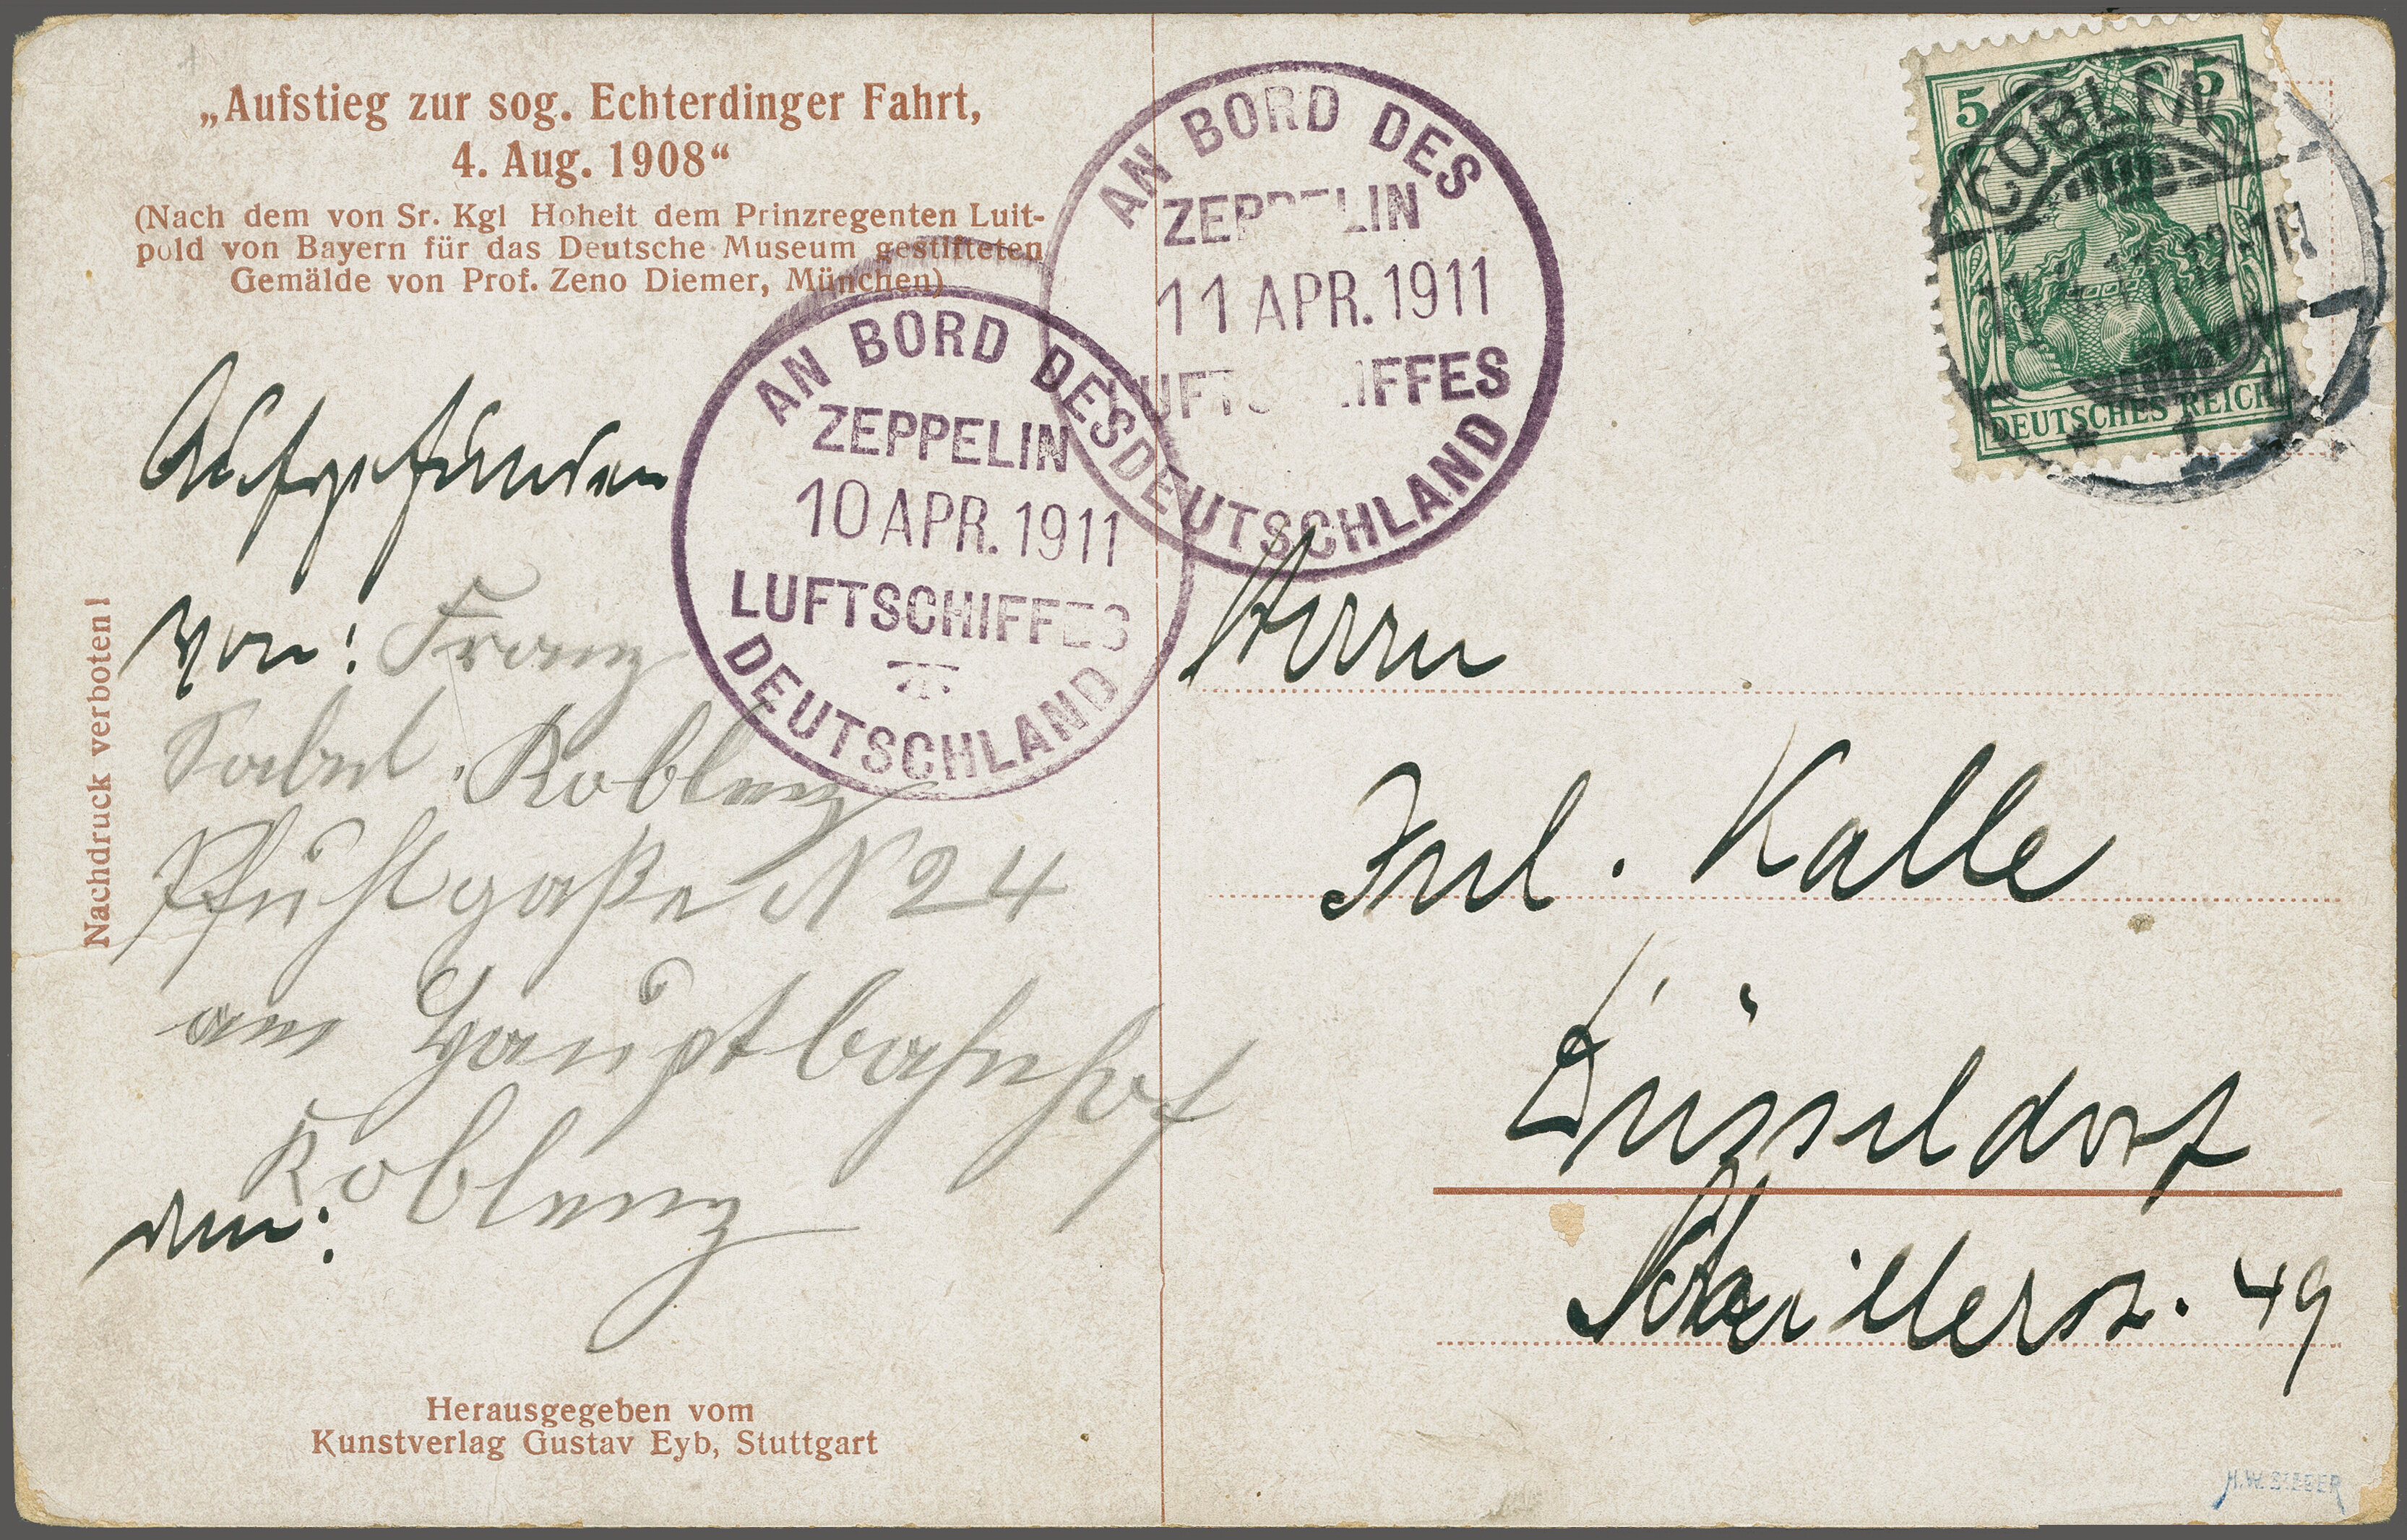 „Aufstieg zur sog. Echterdinger Fahrt,
4. Aug. 1908“
(Nach dem von Sr. Kgl Hoheit dem Prinzregenten Luit-
pold von Bayern für das Deutsche Museum gestifteten
Gemälde von Prof. Zeno Diemer, München)
AN BORD DES
ZEPPELIN
11 APR. 1911
LUFTSCHIFFES
DEUTSCHLAND
AN BORD DES
ZEPPELIN
10 APR. 1911
LUFTSCHIFFES
DEUTSCHLAND
5 5
DEUTSCHES REICH
COBLENZ
11.4.11.12-1N
* 1
Nachdruck verboten!
Aufgefunden
von: Franz
Sabel Koblenz
Pfuhlgaße N 24
am Hauptbahnhof
Koblenz
den:
Herrn
Kalle
Düsseldorf
Schillerstr. 49
Herausgegeben vom
Kunstverlag Gustav Eyb, Stuttgart
H.W. SIEGER